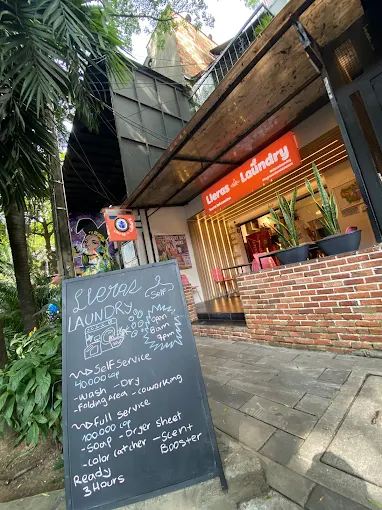 Lleras Laundry
Lleras
Self
LAUNDRY
Open
8am
9pm
Self Service
40000 cop
-wash -Dry
-Folding Area -coworking
Full Service
100.000 cop
-Soap -Dryer sheet
-color catcher -Scent
Booster
Ready
3 Hours